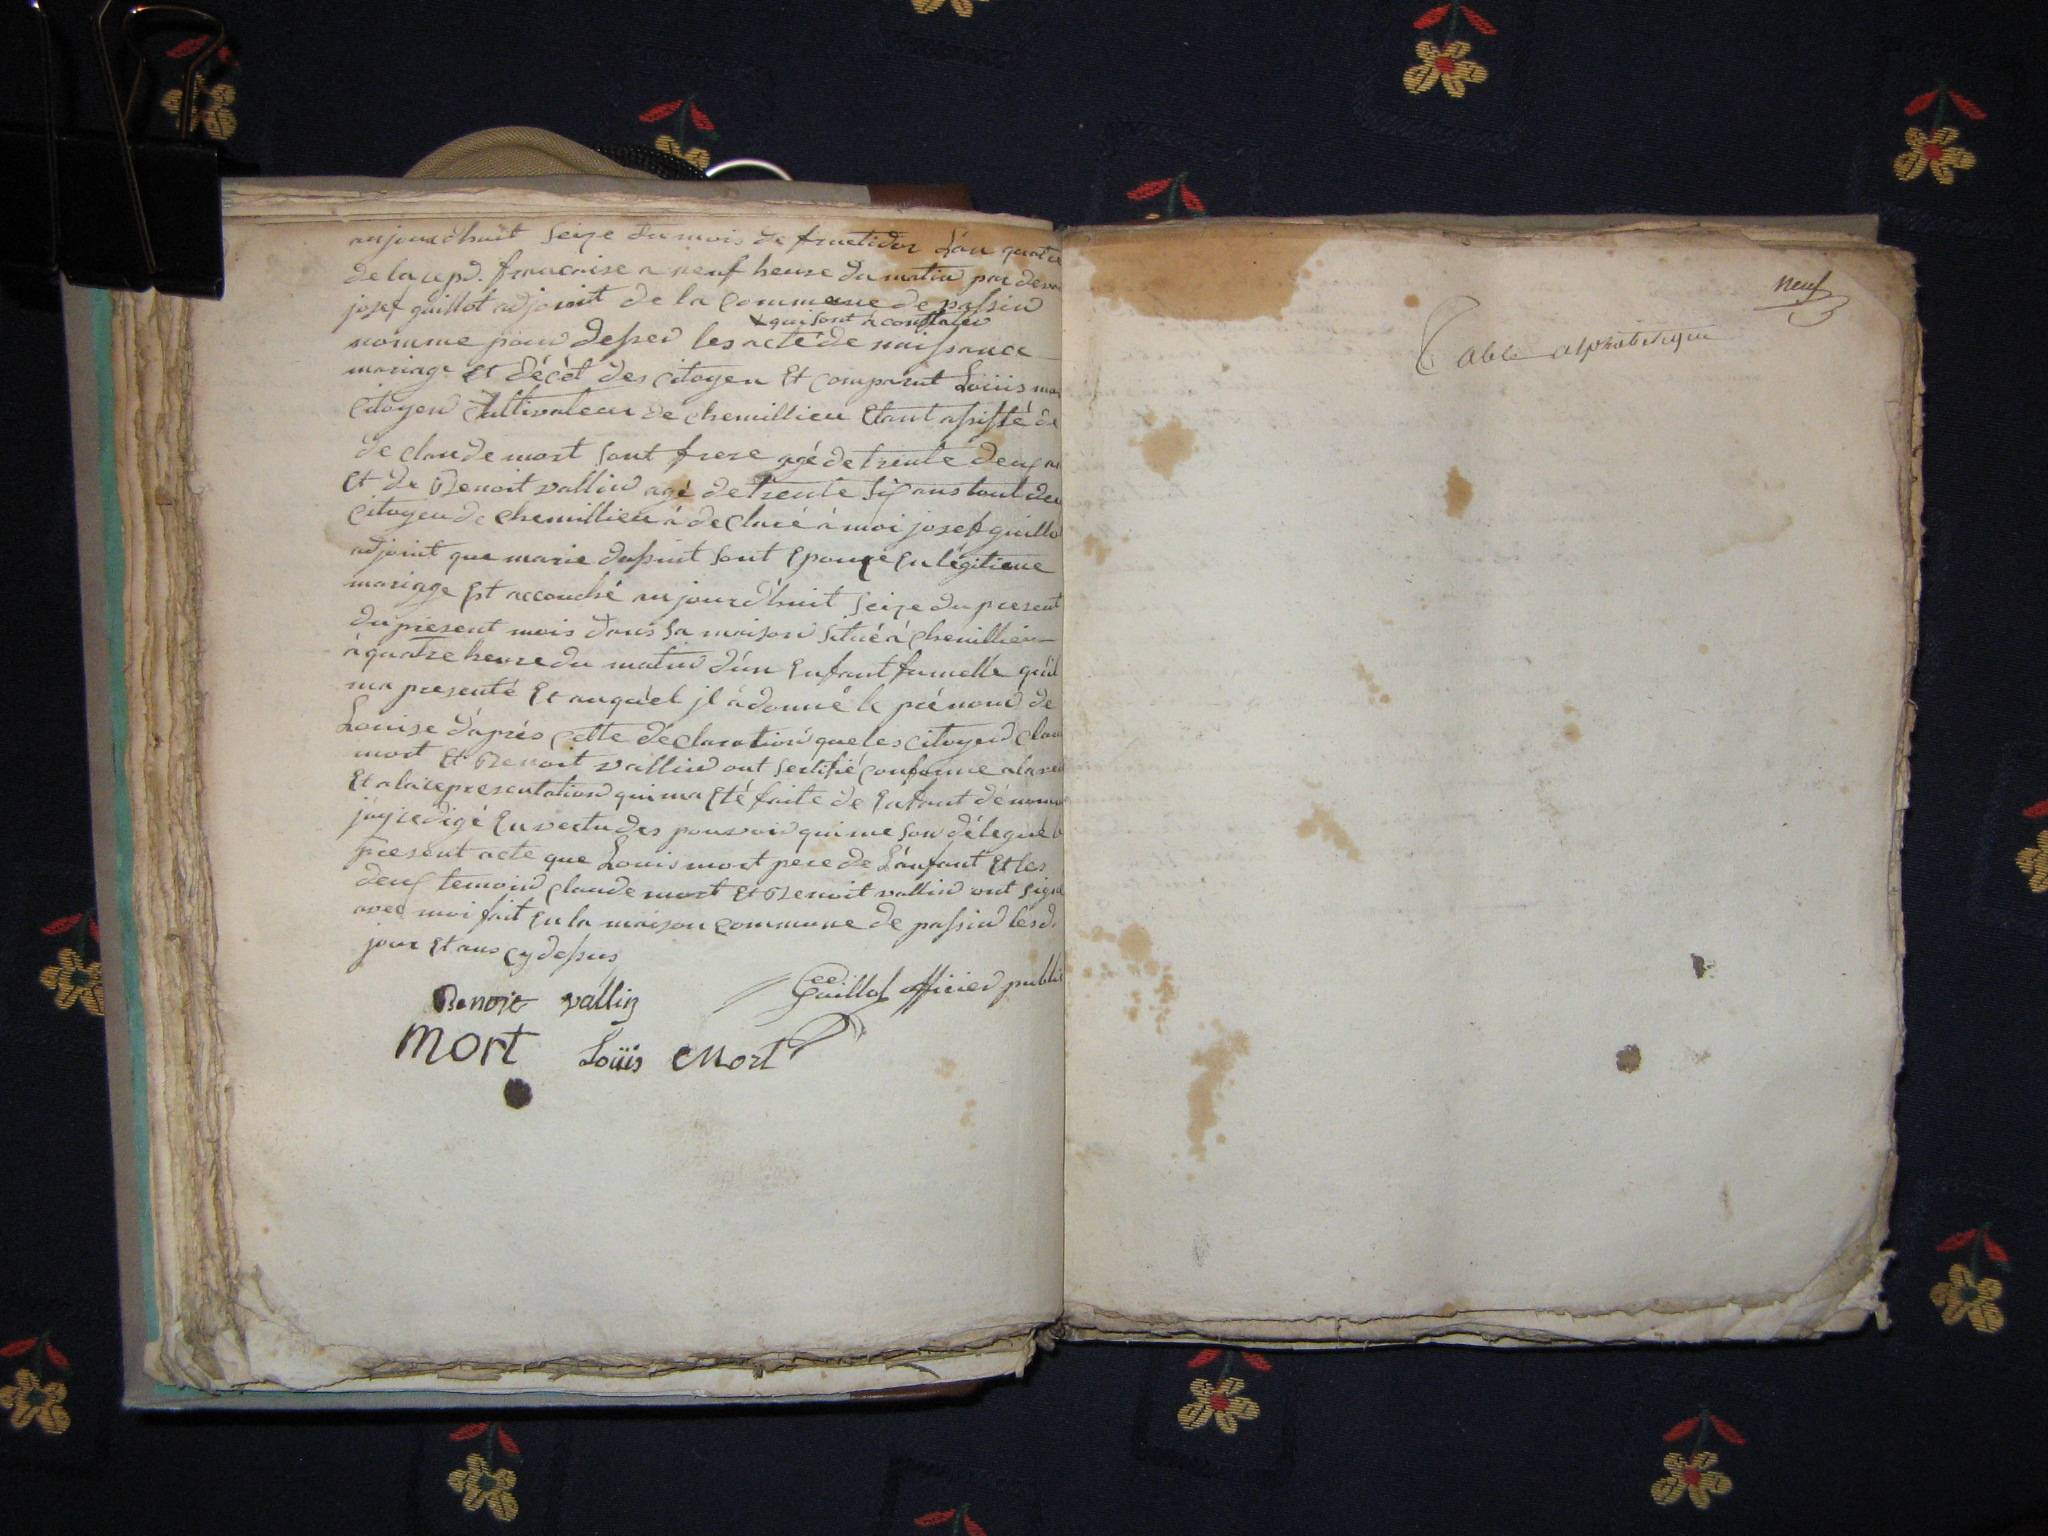 aujourdhuit seize du mois de fructidor L'an quatre
de la repd. francaise a neuf heure du matin par deva
josef guillot adjoint de la commune de passin
+ qui sont à constater
nomme pour desser les acte de naissance
mariage et décét des citoyen Et comparut Loüis mor
citoyen Cultivateur de chemillieu Etant assisté de
de claude mort sont frere agé de trente deux an
Et de Benoit vallin agé de trente six ans tout deu
citoyen de chemillieu à declaré à moi josef guillo
adjoint que marie dupuit sont Epouze En légitieme
mariage Est accouché aujourd'huit seize du present
du present mois dans sa maison situé à chemillieu
à quatre heure du matin d'un Enfant fumelle qu'il
ma presenté Et auquel jl à donné le prénom de
Louise d'aprés cette déclaration que les citoyen clau
mort Et Benoit vallin out sertifié conforme a la ver
Et a la representation qui ma Eté faite de Enfant dénomm
j'ay redigé En vertu des pouvoir qui me son délegué l
present acte que Louis mort pere de L'anfant Et les
deux temoin claude mort Et Benoit vallin ont signé
avec moi fait En la maison commune de passin les d.
jour Et ans cy dessus
Benoit vallin Guillot officier public
mort Loüis Mort
neuf
Table alphabetique